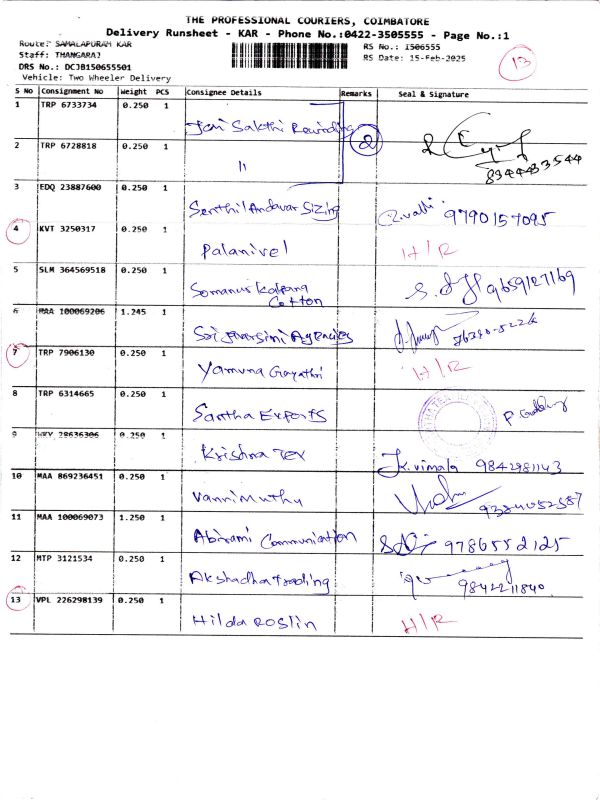 THE PROFESSIONAL COURIERS, COIMBATORE
Delivery Runsheet - KAR - Phone No.:0422-3505555 - Page No.:1
Route: SAMALAPURAM KAR
RS No.: I506555
Staff: THANGARAJ
RS Date: 15-Feb-2025
13
DRS No.: DCJB150655501
Vehicle: Two Wheeler Delivery
S No Consignment No Weight PCS Consignee Details Remarks Seal & Signature
1 TRP 6733734 0.250 1
Sakthi Rewinding
2 TRP 6728818 0.250 1 2
"
8344433544
3 EDQ 23887600 0.250 1
Senthil Andavar Sizing 9790157095
4 KVT 3250317 0.250 1
Palanivel H/R
5 SLM 364569518 0.250 1
Somanur Kalpana Cotton 9659127169
6 MAA 100069206 1.245 1
Agencies
7 TRP 7906130 0.250 1
Yamuna Gayathri H/R
8 TRP 6314665 0.250 1
Santha Exports
9 28636306 0.250 1
Krishna Tex K. Vimala 9842981143
10 MAA 869236451 0.250 1
Vannimuthu 9384052587
11 MAA 100069073 1.250 1
Abirami Communication 9786552125
12 MTP 3121534 0.250 1
Akshadha Trading 9842211840
13 VPL 226298139 0.250 1
Hilda Roslin H/R